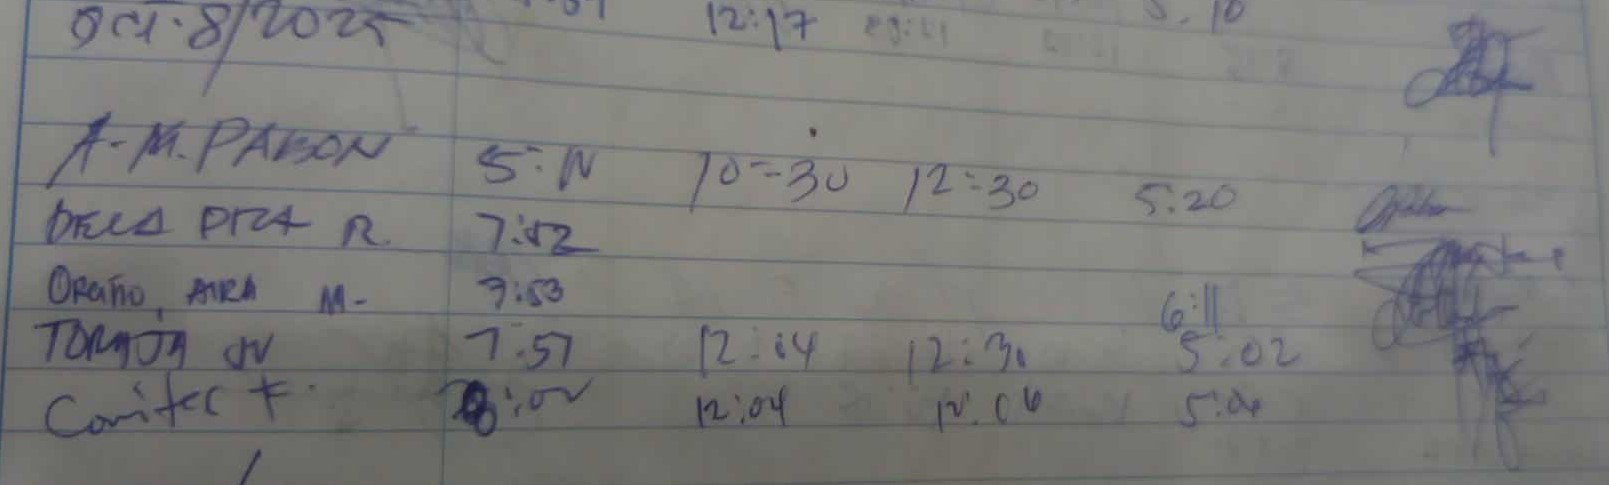 Oct. 8/2025 12:17 5.10
A-M. PABON 5:N 10-30 12:30 5:20
DELA PEÑA R. 7:52
Oraño, AIRA M- 7:53 6:11
7:57 12:14 12:30 5:02
F. 8:02 12:04 12:06